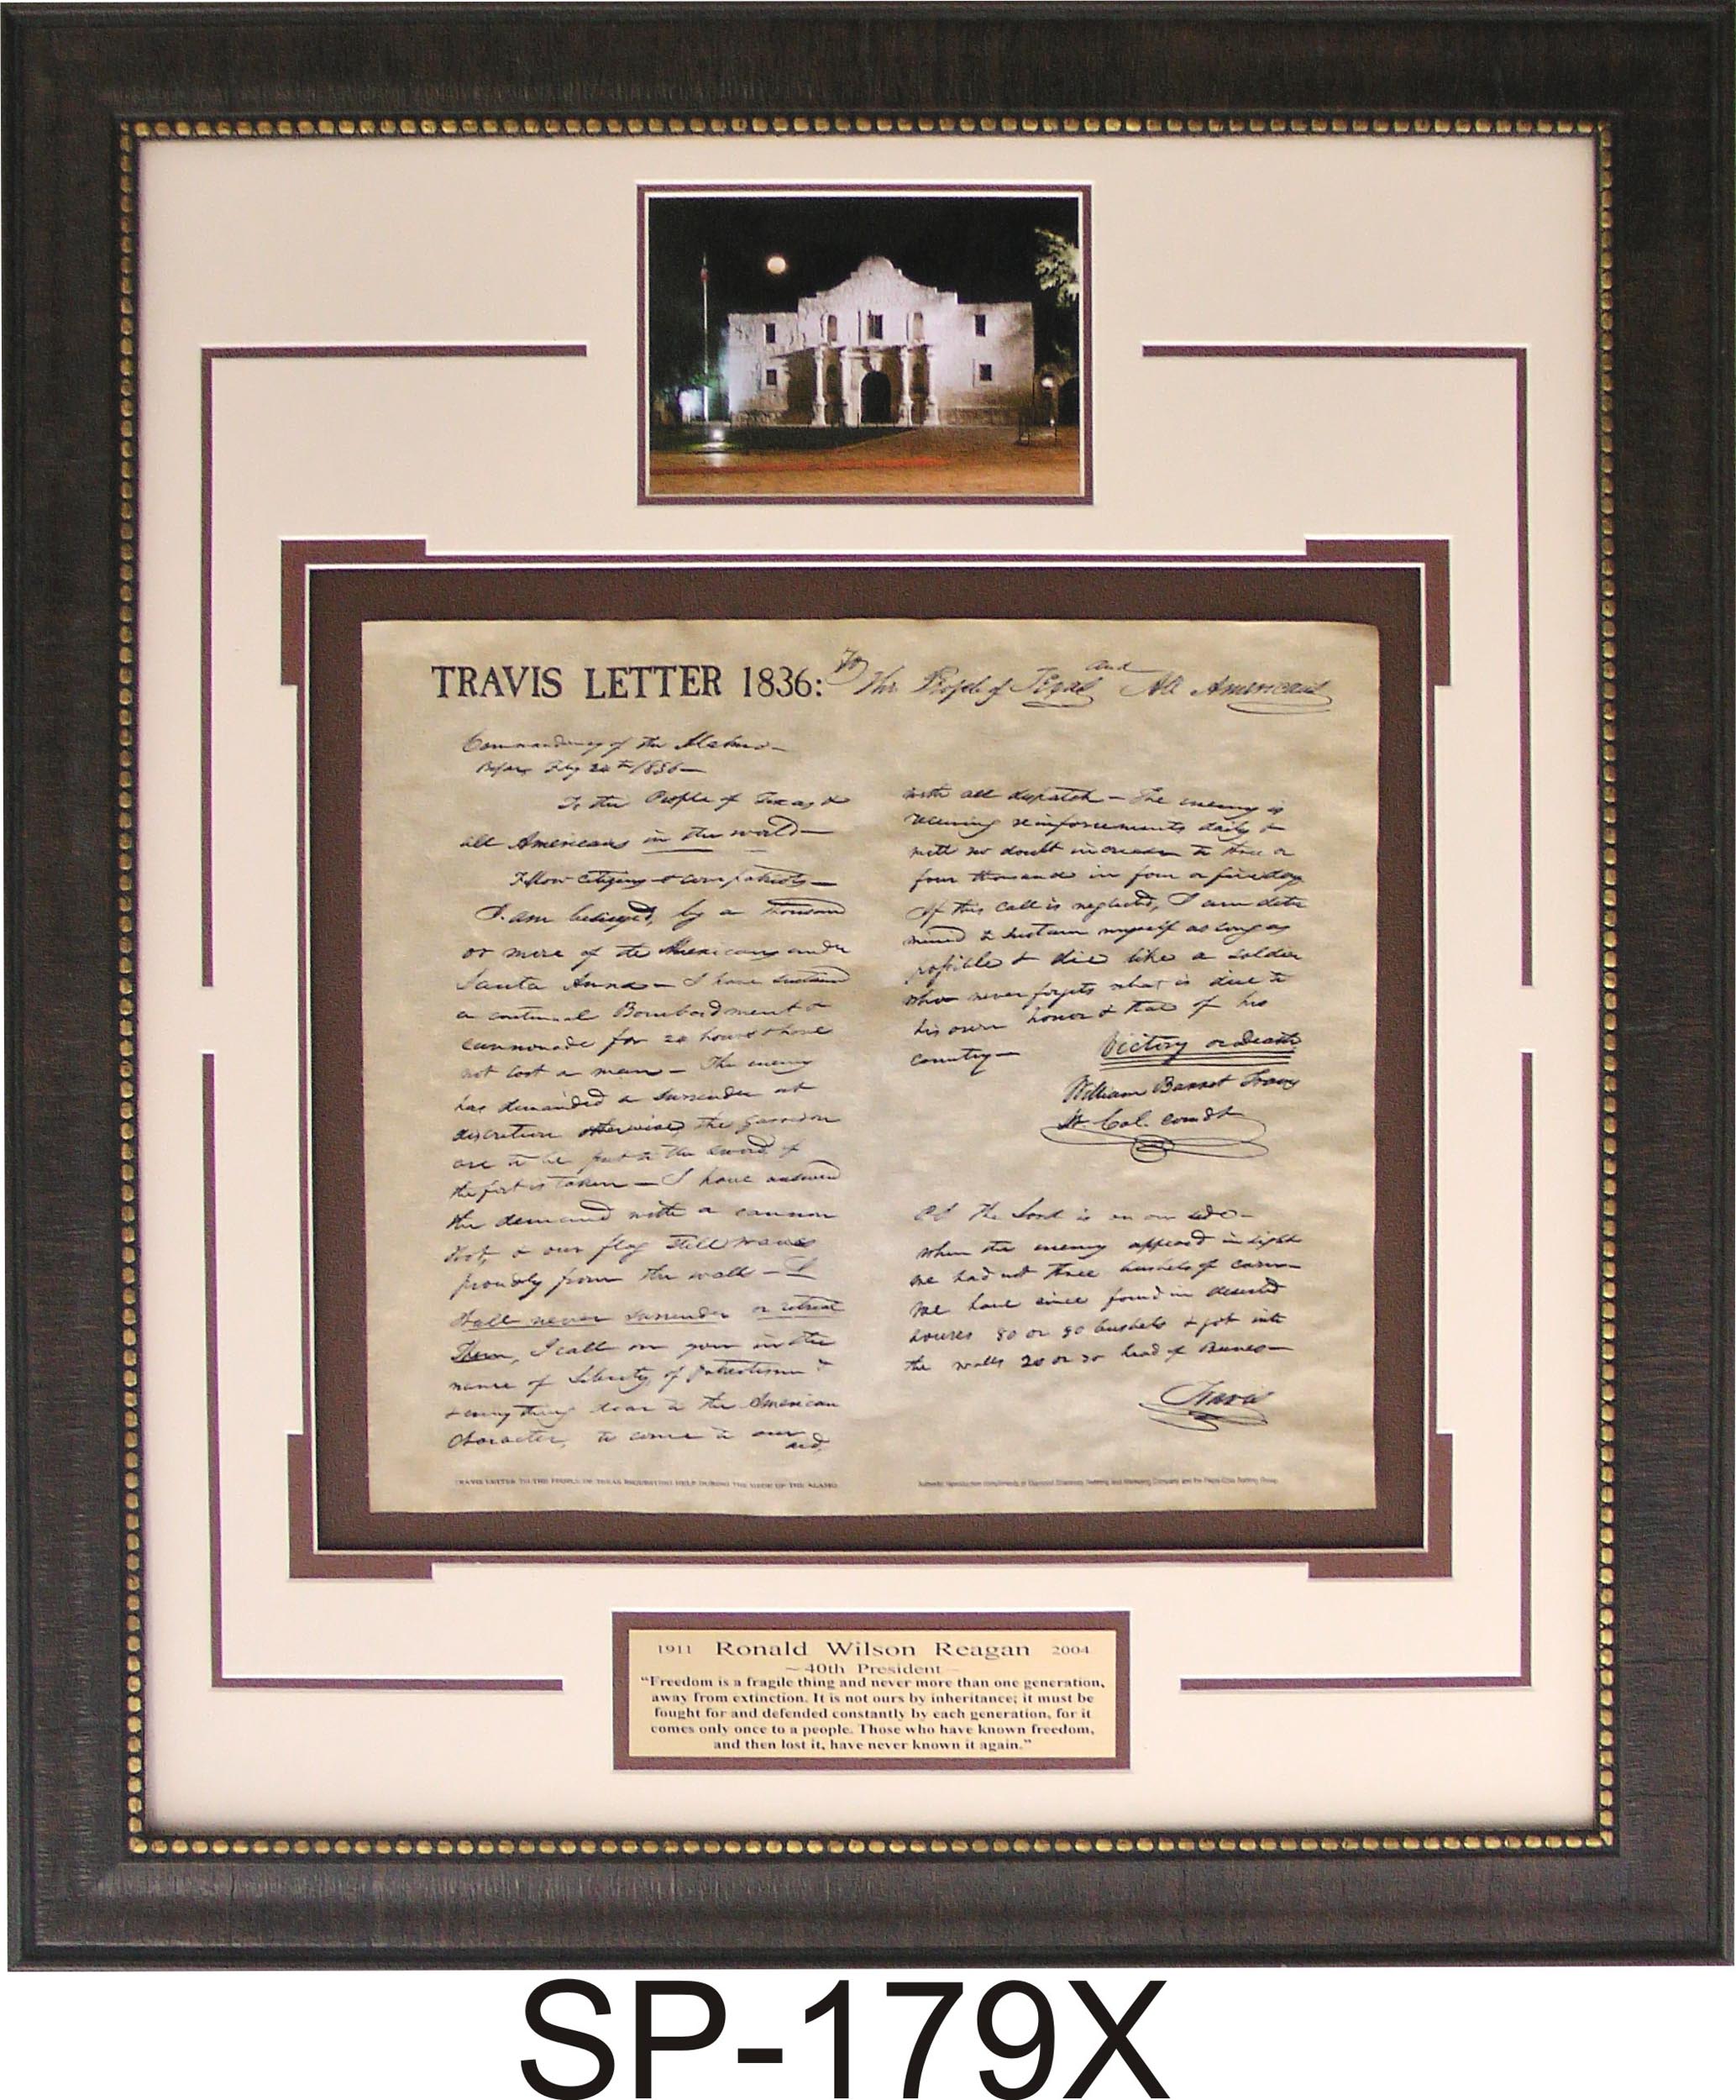 TRAVIS LETTER 1836: To The People of Texas and All Americans
Commandancy of the Alamo—
Bejar, Feby 24th 1836—
To the People of Texas &
all Americans in the world—
Fellow citizens & compatriots—
I am besieged, by a thousand
or more of the Mexicans under
Santa Anna— I have sustained
a continual Bombardment &
cannonade for 24 hours & have
not lost a man — The enemy
has demanded a surrender at
discretion otherwise, the garrison
are to be put to the sword, if
the fort is taken — I have answered
the demand with a cannon
shot, & our flag still waves
proudly from the walls — I
shall never surrender or retreat
Then, I call on you in the
name of Liberty, of patriotism &
& every thing dear to the American
character, to come to our
aid,
with all dispatch — The enemy is
receiving reinforcements daily &
will no doubt increase to three or
four thousand in four or five days
If this call is neglected, I am deter
mined to sustain myself as long as
possible & die like a soldier
who never forgets what is due to
his own honor & that of his
country—
Victory or Death
William Barret Travis
Lt. Col. comdt
P.S. The Lord is on our side—
When the enemy appeared in sight
we had not three bushels of corn—
We have since found in deserted
houses 80 or 90 bushels & got into
the walls 20 or 30 head of Beeves—
Travis
TRAVIS LETTER TO THE PEOPLE OF TEXAS REQUESTING HELP DURING THE SIEGE OF THE ALAMO
Authentic reproduction compliments of Diamond Shamrock Refining and Marketing Company and the Pepsi-Cola Bottling Group
1911 Ronald Wilson Reagan 2004
~40th President~
“Freedom is a fragile thing and never more than one generation,
away from extinction. It is not ours by inheritance; it must be
fought for and defended constantly by each generation, for it
comes only once to a people. Those who have known freedom,
and then lost it, have never known it again.”
SP-179X